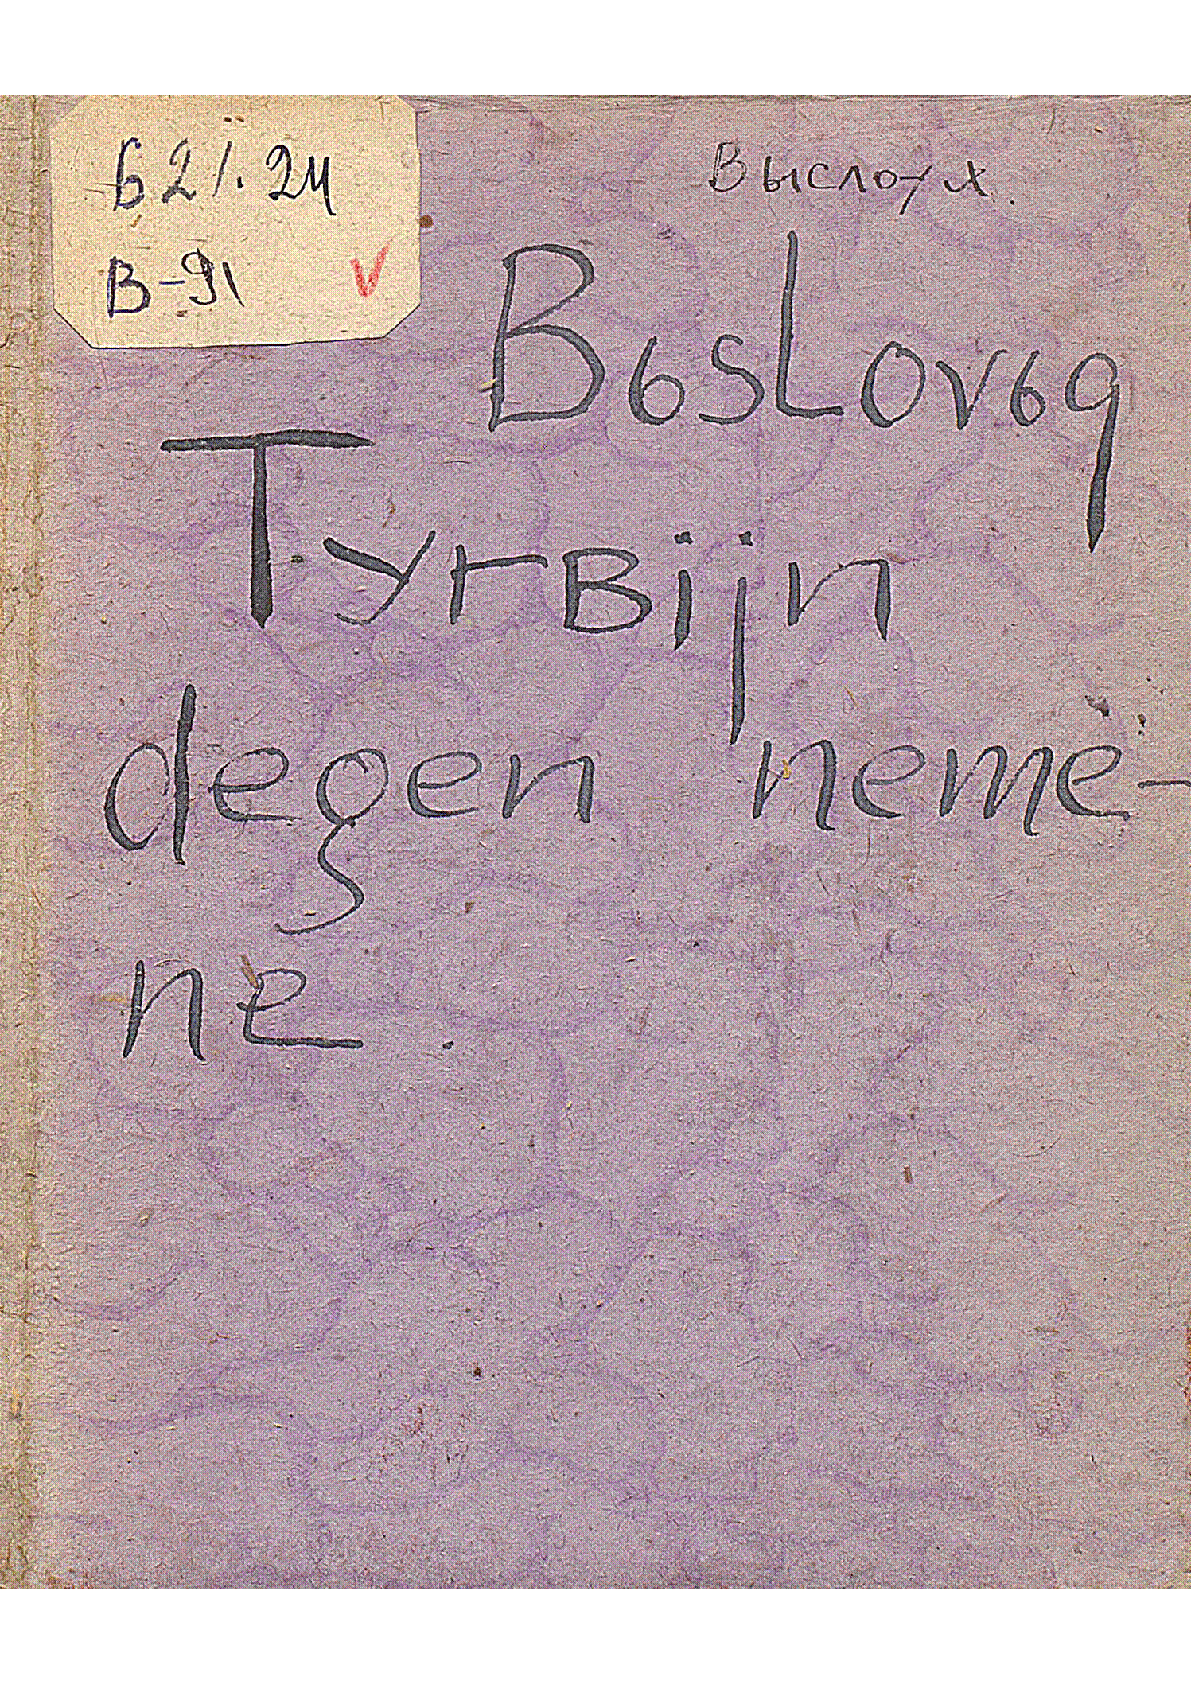 621.24
В-91
Выслоух
Bьslovьq
Tyrʙijn
degen neme-
ne